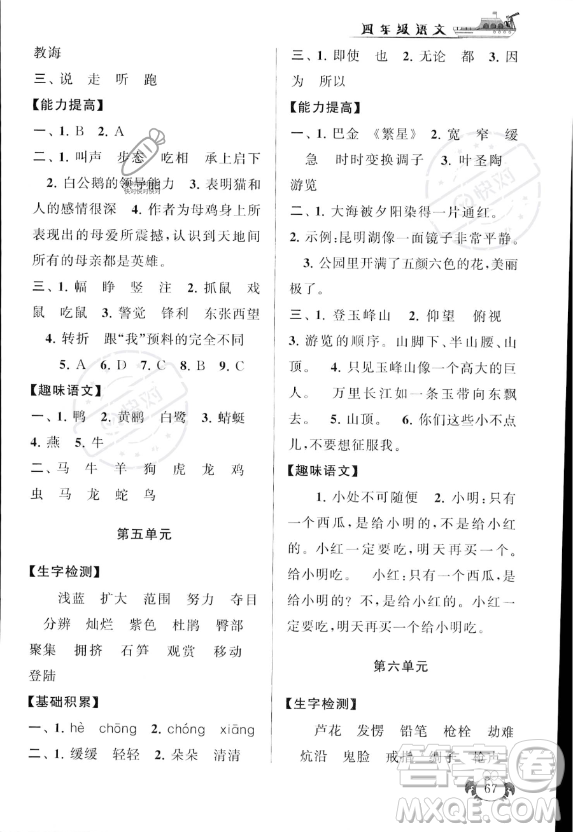 四年级语文
教诲
三、说 走 听 跑
【能力提高】
一、1. B 2. A
二、1. 叫声 步态 吃相 局促不安
2. 白公鹅的领导能力 3. 表明猫和
人的感情很深。 4. 作者为母鸡身上所
表现出的母爱所震撼,认识到天地间
所有的母亲都是英雄。
三、1. 幅 睁 竖 注 2. 抓鼠 戏
鼠 吃鼠 3. 警觉 锋利 东张西望
4. 转折 跟“我”预料的完全不同
5. A 6. D 7. C 8. B 9. C
【趣味语文】
一、1. 鸭 2. 黄鹂 白鹭 3. 蜻蜓
4. 燕 5. 牛
二、马 牛 羊 狗 虎 龙 鸡
虫 马 龙 蛇 鸟
第五单元
【生字检测】
浅蓝 扩大 范围 努力 夺目
分辨 灿烂 紫色 杜鹃 臀部
聚集 拥挤 石笋 观赏 移动
登陆
【基础积累】
一、1. hè chōng 2. chóng xiāng
二、1. 缓缓 轻轻 2. 朵朵 清清
三、1. 即使 也 2. 无论 都 3. 因
为 所以
【能力提高】
一、1. 巴金 《繁星》 2. 宽 窄 缓
急 时时变换调子 3. 叶圣陶
游览
二、1. 大海被夕阳染得一片通红。
2. 示例:昆明湖像一面镜子非常平静。
3. 公园里开满了五颜六色的花,美丽
极了!
三、1. 登玉峰山 2. 仰望 俯视
3. 游览的顺序。山脚下、半山腰、山
顶。 4. 只见玉峰山像一个擎天的巨
人。 万里长江就如一条玉带向东飘
去。 5. 山顶。 6. 你们这些小不点
儿,不要想征服我。
【趣味语文】
1. 小处不可随便 2. 小明:只有
一个西瓜,是给小明的,不是给小红
的。小红一定要吃,小明一定不要吃。
给小明吃。 小红:只有一个西瓜,是
给小明的,不是给小红的。小红一定
要吃,小明一定不要吃。给小明吃。
第六单元
【生字检测】
芦花 发愣 铅笔 枪栓 劫难
炕沿 鬼脸 戒指 绑子 枪声
67
快对
答案卷
MXQE.COM